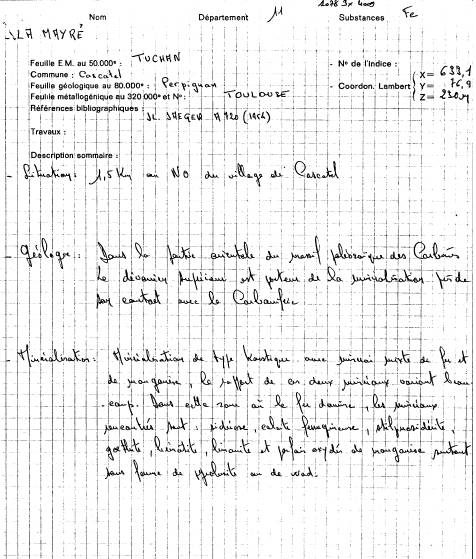 1078 3x 4009
Nom Département 11 Substances Fe
LA MAYRÉ
Feuille E.M. au 50.000e : TUCHAN - N° de l'Indice :
Commune : Cascatel
Feuille géologique au 80.000e : Perpignan - Coordon. Lambert
X= 633,1
Y= 76,9
Z= 230 m
Feuille métallogénique au 320 000e et N° : TOULOUSE
Références bibliographiques :
JL. JAEGER A 720 (1964)
Travaux :
Description sommaire :
- Situation : 1,5 Km au NO du village de Cascatel
- Géologie : Dans la partie orientale du massif paléozoïque des Corbières
Le dévonien supérieur est porteur de la minéralisation près de
son contact avec le Carbonifère
- Minéralisation : Minéralisation de type karstique avec minerai mixte de fer et
de manganèse, le rapport de ces deux minéraux variant beau
coup. Dans cette zone où le fer domine, les minéraux
rencontrés sont : sidérose, calcite ferrugineuse, stilpnosidérite,
goethite, hématite, limonite et parfois oxydés de manganèse surtout
sous forme de pyrolusite ou de wad.